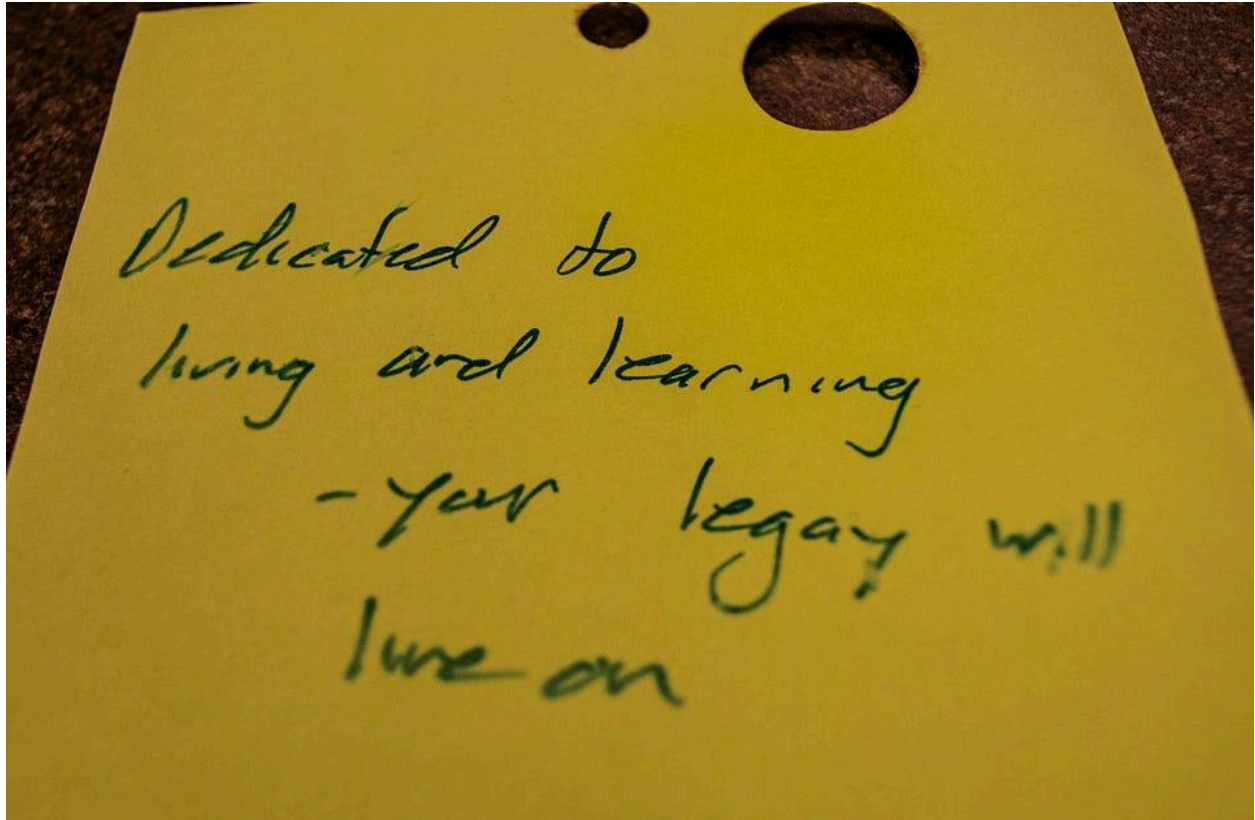 Dedicated to
living and learning
- your legacy will
live on